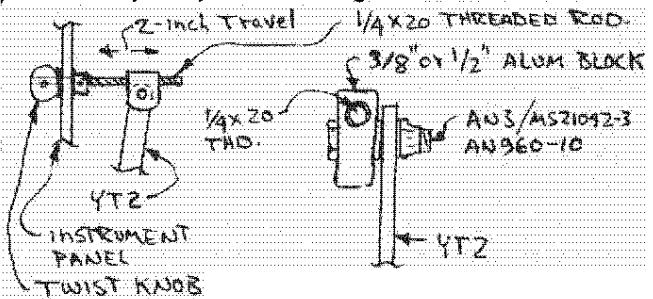 2-inch Travel
1/4 x 20 THREADED ROD.
3/8" or 1/2" ALUM BLOCK
1/4 x 20
THD.
AN3/MS21042-3
AN960-10
YTZ
INSTRUMENT
PANEL
YTZ
TWIST KNOB